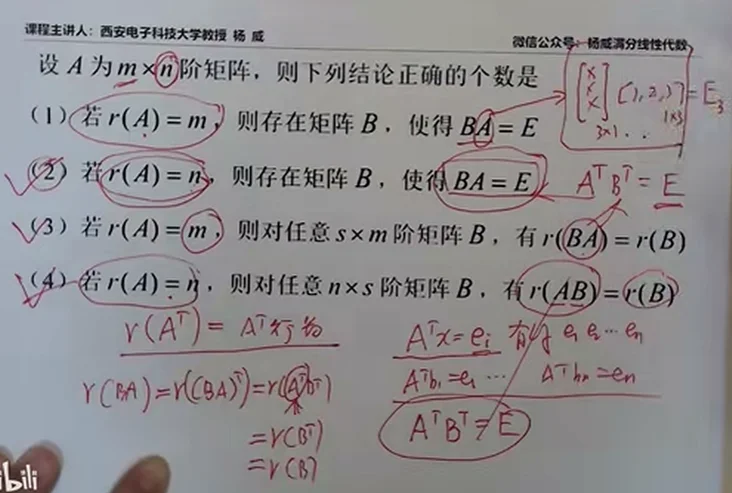 课程主讲人：西安电子科技大学教授 杨 威
微信公众号：杨威满分线性代数
设 A 为 m×n 阶矩阵，则下列结论正确的个数是
[× × ×] [1,2,3] = E₃
3×1 1×3
(1) 若 r(A) = m，则存在矩阵 B，使得 BA = E
(2) 若 r(A) = n，则存在矩阵 B，使得 BA = E
AᵀBᵀ = E
(3) 若 r(A) = m，则对任意 s×m 阶矩阵 B，有 r(BA) = r(B)
(4) 若 r(A) = n，则对任意 n×s 阶矩阵 B，有 r(AB) = r(B)
r(Aᵀ) = Aᵀ行
Aᵀx = eᵢ 有 e₁ e₂ … eₙ
r(BA) = r((BA)ᵀ) = r(AᵀBᵀ)
Aᵀb₁ = e₁ … Aᵀbₙ = eₙ
= r(Bᵀ)
AᵀBᵀ = E
= r(B)
bili